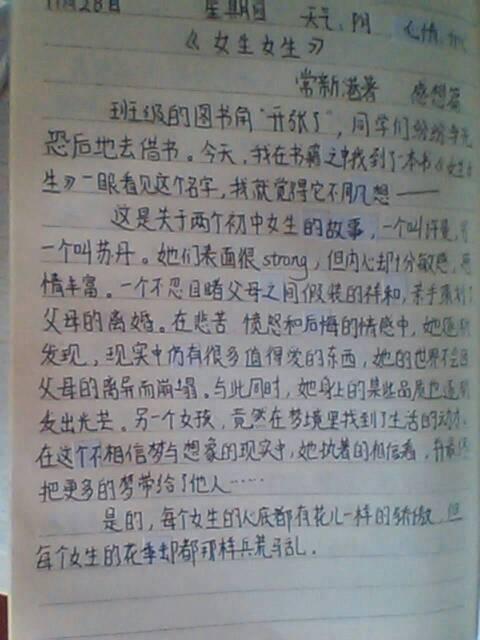 11月28日 星期日 天气:阴 心情:
《女生女生》
常新港著 感想篇
班级的图书角“开张了”,同学们纷纷争先
恐后地去借书。今天,我在书籍之中找到了一本书《女生女
生》一眼看见这个名字,我就觉得它不同凡想——
这是关于两个初中女生的故事,一个叫许曼,另
一个叫苏丹。她们表面很strong,但内心却十分敏感,感
情丰富。一个不忍目睹父母之间假装的祥和,亲手策划了
父母的离婚。在悲苦 愤怒和后悔的情感中,她逐渐
发现,现实中仍有很多值得爱的东西,她的世界不会因
父母的离异而崩塌。与此同时,她身上的某些品质也逐渐
发出光芒。另一个女孩,竟然在梦境里找到了生活的动力.
在这个不相信梦与想象的现实中,她执著的相信着,并最终
把更多的梦带给了他人……
是的,每个女生的心底都有花儿一样的骄傲,但
每个女生的花季却都那样兵荒马乱.